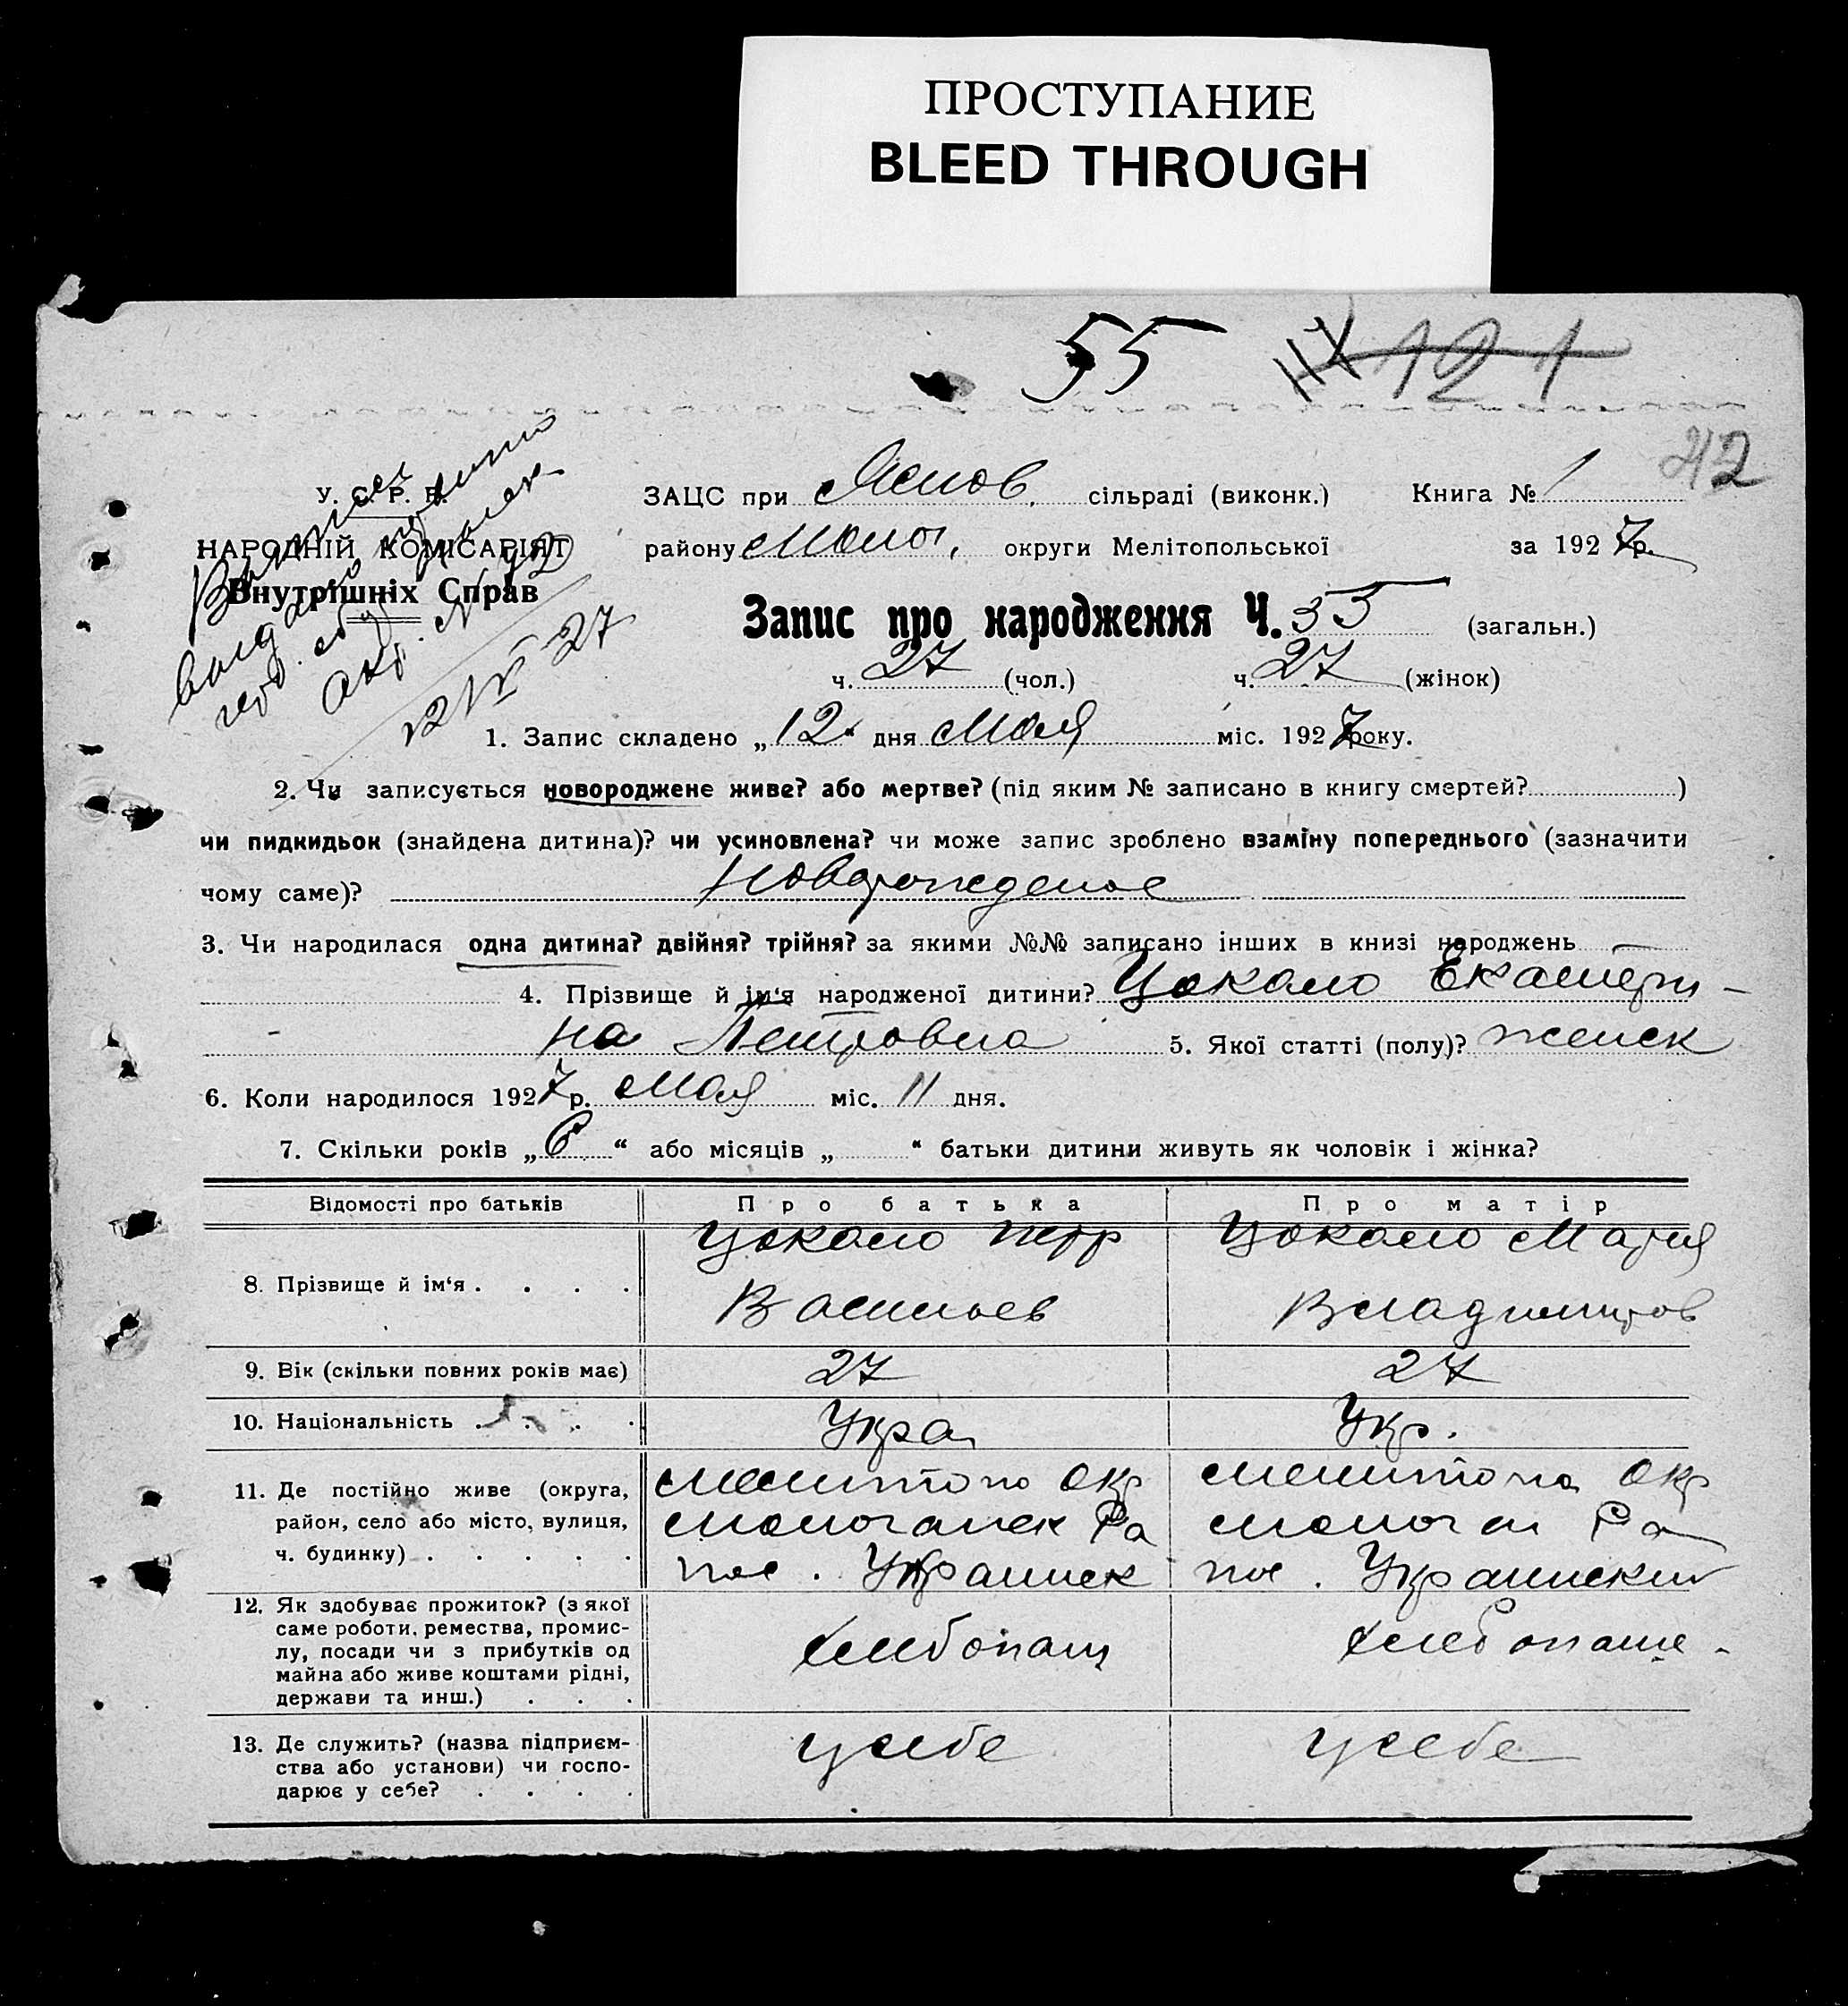 ПРОСТУПАНИЕ
BLEED THROUGH
55
121
42
У. С. Р. Р.
НАРОДНІЙ КОМІСАРІЯТ
Внутрішніх Справ
ЗАЦС при сільраді (виконк.) Книга № 1
району Молоч. округи Мелітопольської за 1927р.
Запис про народження Ч. 55 (загальн.)
ч. 27 (чол.) ч. 27 (жінок)
1. Запис складено „12" дня Мая міс. 1927 року.
2. Чи записується новороджене живе? або мертве? (під яким № записано в книгу смертей? )
чи пидкидьок (знайдена дитина)? чи усиновлена? чи може запис зроблено взаміну попереднього (зазначити
чому саме)? Новорожденое
3. Чи народилася одна дитина? двійня? трійня? за якими №№ записано інших в книзі народжень
4. Прізвище й ім'я народженої дитини? Цокало Екатери-
на Петровна 5. Якої статті (полу)? женск
6. Коли народилося 1927 р. Мая міс. 11 дня.
7. Скільки років „6" або місяців „ " батьки дитини живуть як чоловік і жінка?
Відомості про батьків Про батька Про матір
8. Прізвище й ім'я . . . . Цокало Петр Цокало Мария
Васильев Владимиров
9. Вік (скільки повних років має) 27 27
10. Національність . . . . Укра Укр.
11. Де постійно живе (округа, Мелитопо Окр Мелитопо Окр
район, село або місто, вулиця, Молочанск Ра Ра
ч. будинку) . . . . . пос. Украинск пос. Украинский
12. Як здобуває прожиток? (з якої
саме роботи, ремества, промис-
лу, посади чи з прибутків од хлебопаш хлебопаше-
майна або живе коштами рідні,
держави та инш.) . . .
13. Де служить? (назва підприєм- у себе у себе
ства або установи) чи госпо-
дарює у себе? . . . .